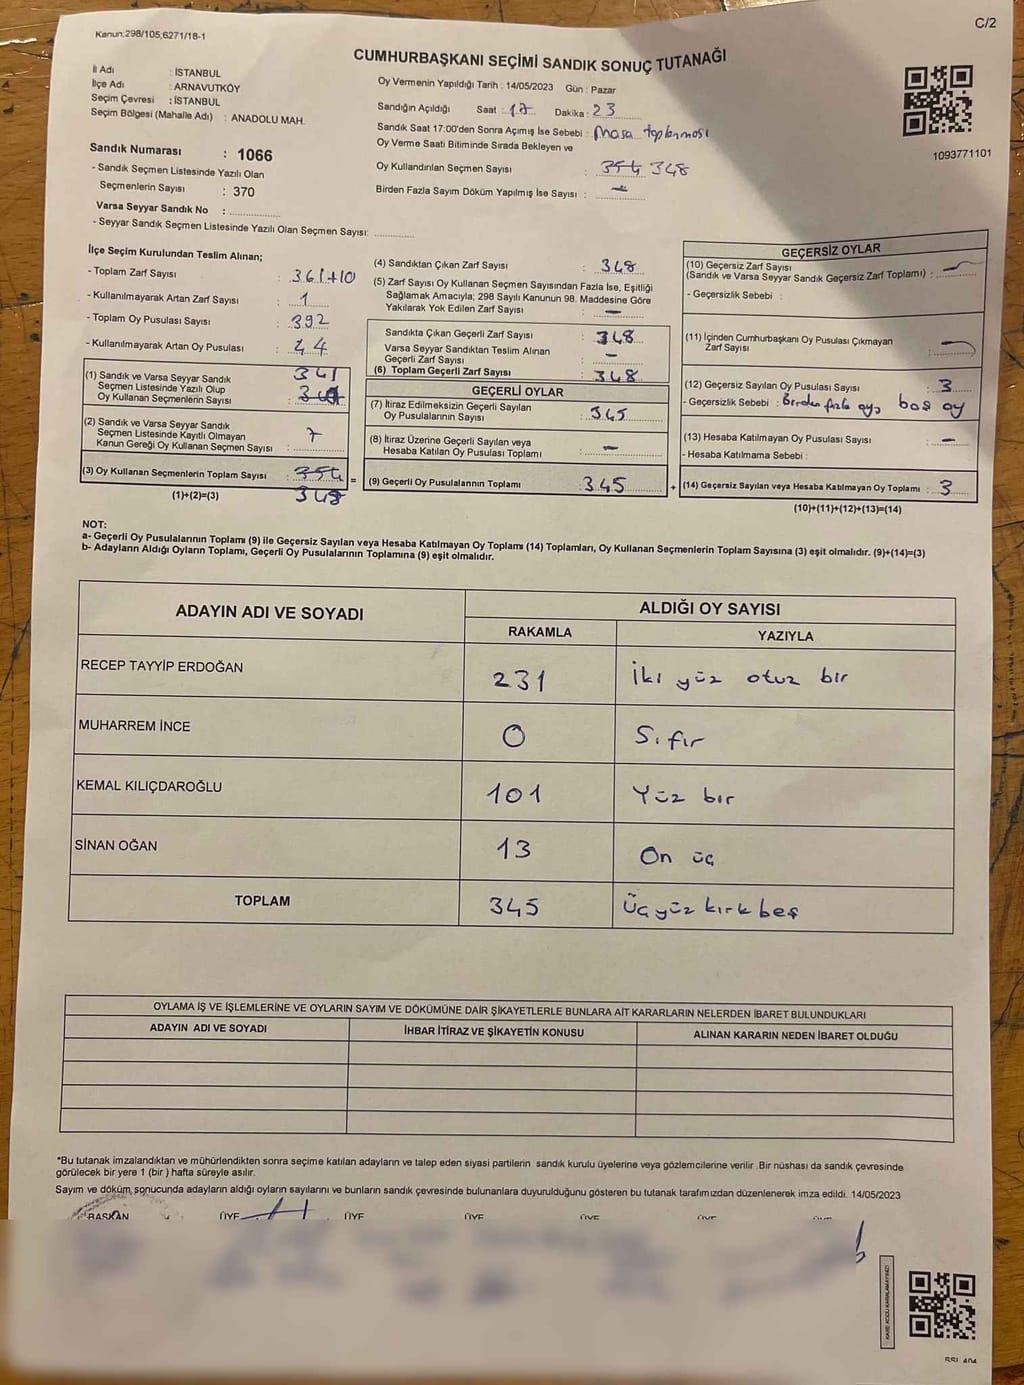 Kanun:298/105,6271/18-1
C/2
CUMHURBAŞKANI SEÇİMİ SANDIK SONUÇ TUTANAĞI
İl Adı : İSTANBUL
İlçe Adı : ARNAVUTKÖY
Seçim Çevresi : İSTANBUL
Seçim Bölgesi (Mahalle Adı) : ANADOLU MAH.
Sandık Numarası : 1066
- Sandık Seçmen Listesinde Yazılı Olan
Seçmenlerin Sayısı : 370
Varsa Seyyar Sandık No :
- Seyyar Sandık Seçmen Listesinde Yazılı Olan Seçmen Sayısı:
Oy Vermenin Yapıldığı Tarih : 14/05/2023 Gün : Pazar
Sandığın Açıldığı Saat : 17 Dakika : 23
Sandık Saat 17:00'den Sonra Açımış İse Sebebi : masa toplanması
Oy Verme Saati Bitiminde Sırada Bekleyen ve
Oy Kullandırılan Seçmen Sayısı : 354 348
Birden Fazla Sayım Döküm Yapılmış İse Sayısı : -
1093771101
İlçe Seçim Kurulundan Teslim Alınan;
- Toplam Zarf Sayısı : 361+10
- Kullanılmayarak Artan Zarf Sayısı : 1
- Toplam Oy Pusulası Sayısı : 392
- Kullanılmayarak Artan Oy Pusulası : 44
(1) Sandık ve Varsa Seyyar Sandık 341
Seçmen Listesinde Yazılı Olup
Oy Kullanan Seçmenlerin Sayısı :
(2) Sandık ve Varsa Seyyar Sandık
Seçmen Listesinde Kayıtlı Olmayan
Kanun Gereği Oy Kullanan Seçmen Sayısı : 7
(3) Oy Kullanan Seçmenlerin Toplam Sayısı : 354
(1)+(2)=(3) 348
(4) Sandıktan Çıkan Zarf Sayısı : 348
(5) Zarf Sayısı Oy Kullanan Seçmen Sayısından Fazla İse, Eşitliği
Sağlamak Amacıyla; 298 Sayılı Kanunun 98. Maddesine Göre
Yakılarak Yok Edilen Zarf Sayısı : -
Sandıkta Çıkan Geçerli Zarf Sayısı : 348
Varsa Seyyar Sandıktan Teslim Alınan
Geçerli Zarf Sayısı : -
(6) Toplam Geçerli Zarf Sayısı : 348
GEÇERLİ OYLAR
(7) İtiraz Edilmeksizin Geçerli Sayılan
Oy Pusulalarının Sayısı : 345
(8) İtiraz Üzerine Geçerli Sayılan veya
Hesaba Katılan Oy Pusulası Toplamı : -
= (9) Geçerli Oy Pusulalarının Toplamı : 345
GEÇERSİZ OYLAR
(10) Geçersiz Zarf Sayısı
(Sandık ve Varsa Seyyar Sandık Geçersiz Zarf Toplamı) : -
- Geçersizlik Sebebi :
(11) İçinden Cumhurbaşkanı Oy Pusulası Çıkmayan
Zarf Sayısı : -
(12) Geçersiz Sayılan Oy Pusulası Sayısı : 3
- Geçersizlik Sebebi : Birden fazla oy, boş oy
(13) Hesaba Katılmayan Oy Pusulası Sayısı : -
- Hesaba Katılmama Sebebi :
+ (14) Geçersiz Sayılan veya Hesaba Katılmayan Oy Toplamı : 3
(10)+(11)+(12)+(13)=(14)
NOT:
a- Geçerli Oy Pusulalarının Toplamı (9) ile Geçersiz Sayılan veya Hesaba Katılmayan Oy Toplamı (14) Toplamları, Oy Kullanan Seçmenlerin Toplam Sayısına (3) eşit olmalıdır. (9)+(14)=(3)
b- Adayların Aldığı Oyların Toplamı, Geçerli Oy Pusulalarının Toplamına (9) eşit olmalıdır.
ADAYIN ADI VE SOYADI ALDIĞI OY SAYISI
RAKAMLA YAZIYLA
RECEP TAYYİP ERDOĞAN 231 İki yüz otuz bir
MUHARREM İNCE 0 Sıfır
KEMAL KILIÇDAROĞLU 101 Yüz bir
SİNAN OĞAN 13 On üç
TOPLAM 345 Üç yüz kırk beş
OYLAMA İŞ VE İŞLEMLERİNE VE OYLARIN SAYIM VE DÖKÜMÜNE DAİR ŞİKAYETLERLE BUNLARA AİT KARARLARIN NELERDEN İBARET BULUNDUKLARI
ADAYIN ADI VE SOYADI İHBAR İTİRAZ VE ŞİKAYETİN KONUSU ALINAN KARARIN NEDEN İBARET OLDUĞU
*Bu tutanak imzalandıktan ve mühürlendikten sonra seçime katılan adayların ve talep eden siyasi partilerin sandık kurulu üyelerine veya gözlemcilerine verilir .Bir nüshası da sandık çevresinde
görülecek bir yere 1 (bir ) hafta süreyle asılır.
Sayım ve döküm sonucunda adayların aldığı oyların sayılarını ve bunların sandık çevresinde bulunanlara duyurulduğunu gösteren bu tutanak tarafımızdan düzenlenerek imza edildi. 14/05/2023
BAŞKAN ÜYE ÜYE ÜYE ÜYE ÜYE ÜYE
KARE KODU KARALAMAYINIZ!